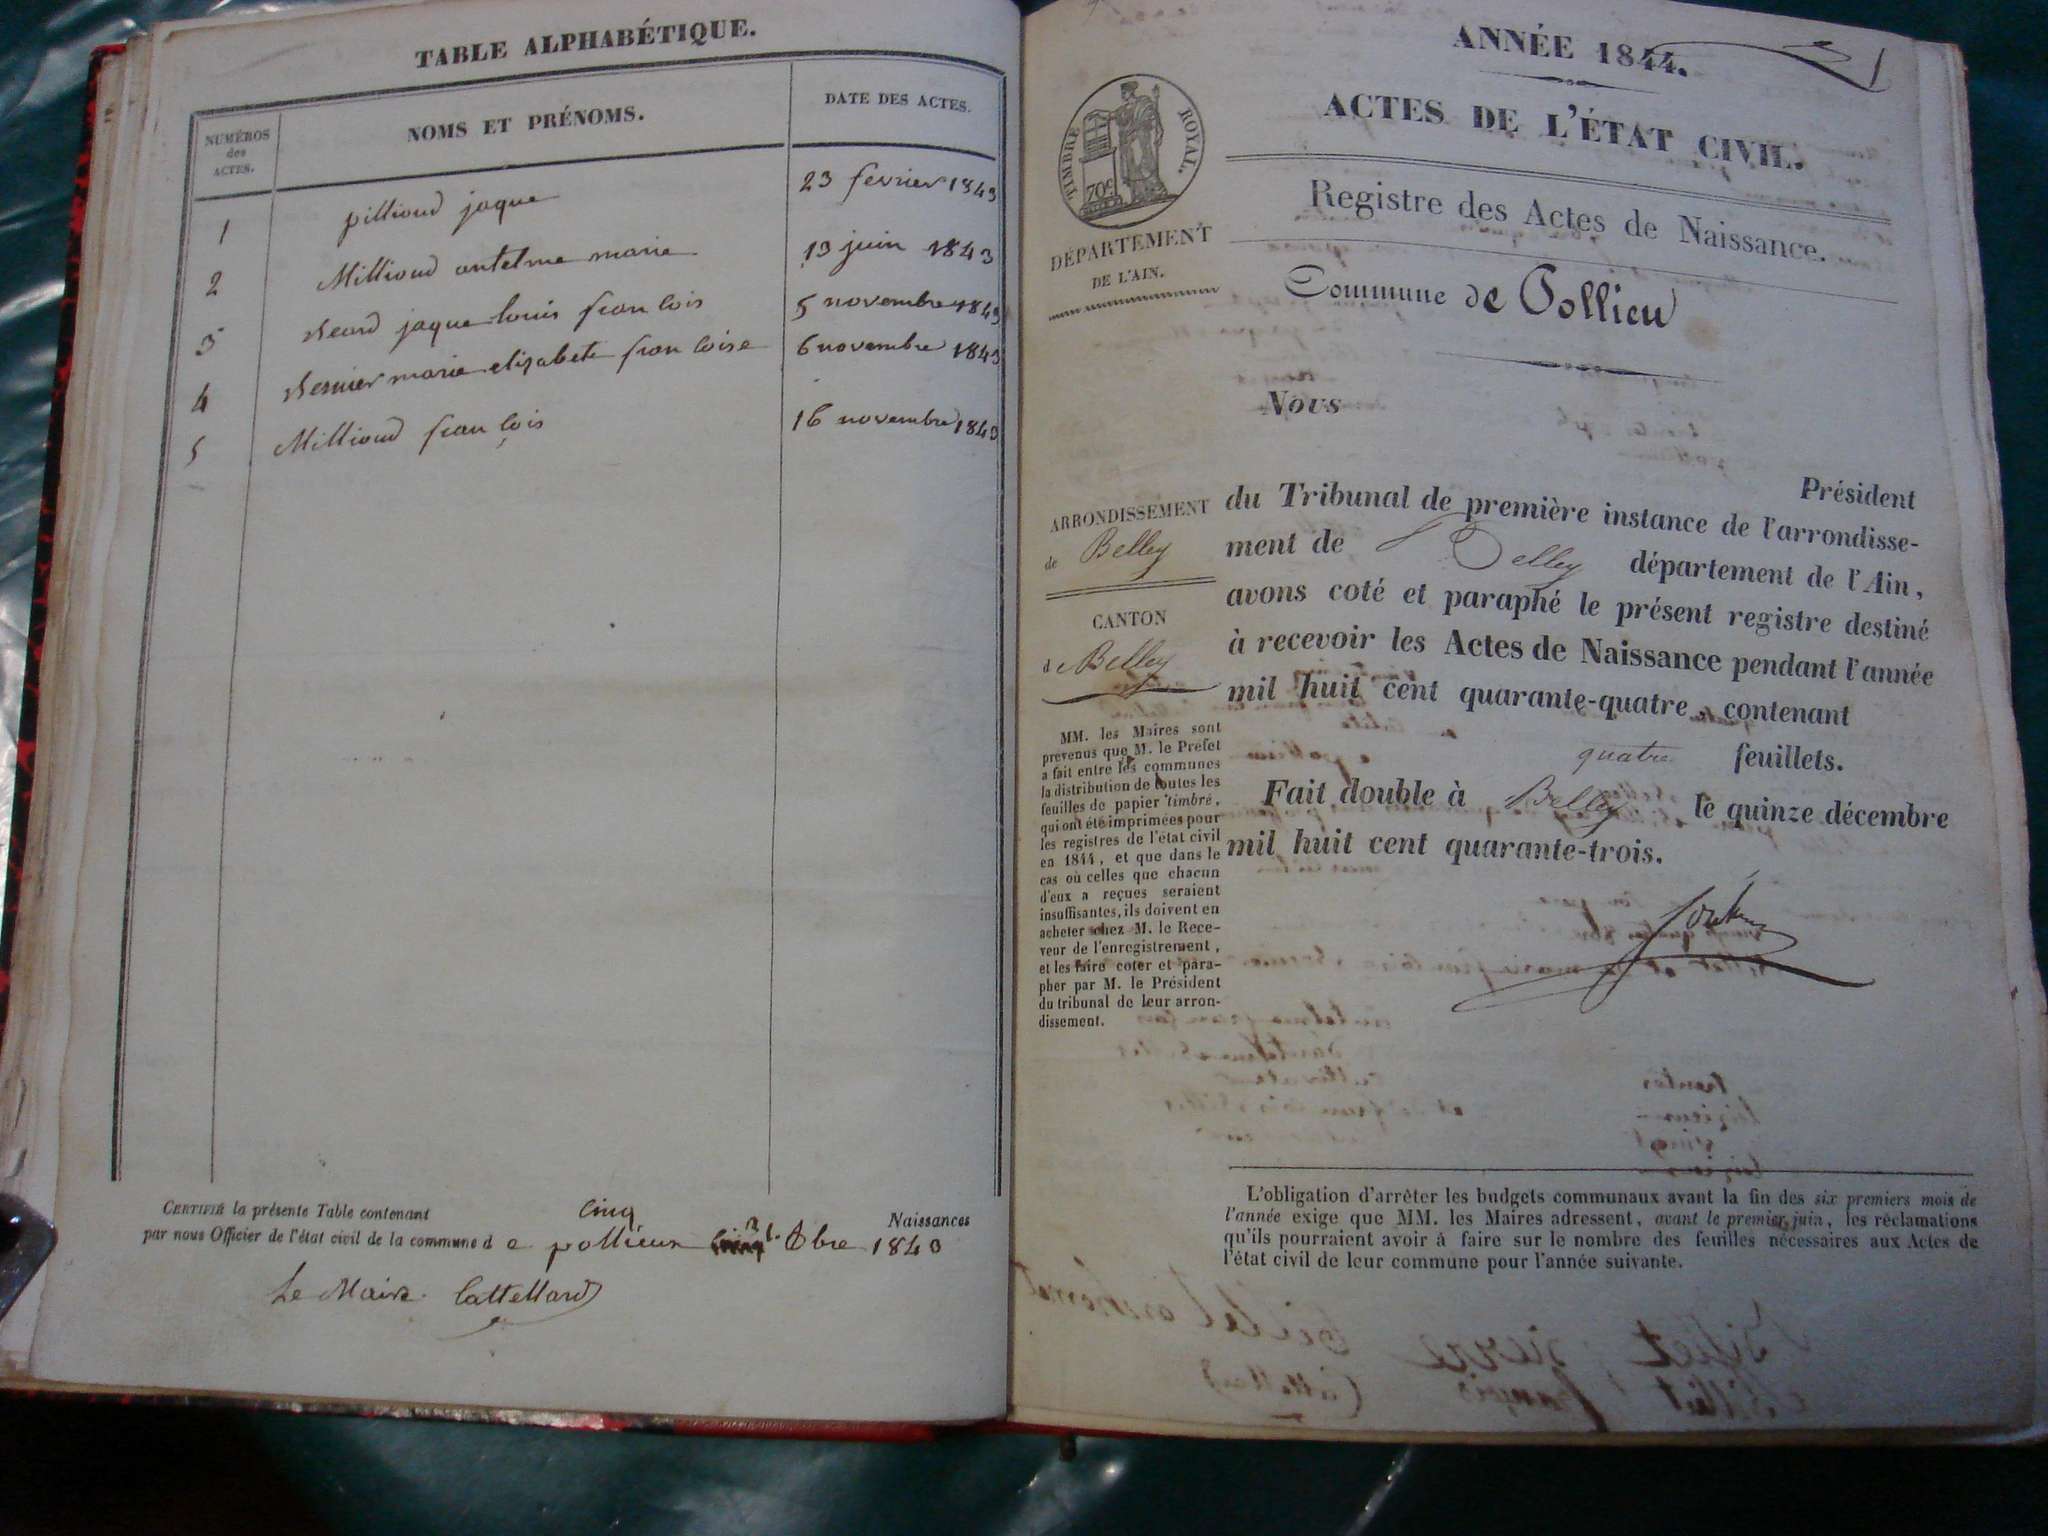 TABLE ALPHABÉTIQUE.
NUMÉROS des ACTES.
NOMS ET PRÉNOMS.
DATE DES ACTES.
1 pillioud jaque 23 fevrier 1843
2 Millioud antelme marie 13 juin 1843
3 jaque louis francois 5 novembre 1843
4 marie elizabete francoise 6 novembre 1843
5 Millioud françois 16 novembre 1843
CERTIFIÉ la présente Table contenant cinq Naissances
par nous Officier de l'état civil de la commune de pollieux bre 1843
Le Maire. Cattelland
ANNÉE 1844.
ACTES DE L'ÉTAT CIVIL.
TIMBRE ROYAL.
70c
Registre des Actes de Naissance.
DÉPARTEMENT
DE L'AIN.
Commune de Pollieu
Nous
Président
ARRONDISSEMENT
de Belley
CANTON
de Belley
du Tribunal de première instance de l'arrondisse-
ment de Belley département de l'Ain,
avons coté et paraphé le présent registre destiné
à recevoir les Actes de Naissance pendant l'année
mil huit cent quarante-quatre, contenant
quatre feuillets.
Fait double à Belley le quinze décembre
mil huit cent quarante-trois.
MM. les Maires sont
prévenus que M. le Préfet
a fait entre les communes
la distribution de toutes les
feuilles de papier timbré,
qui ont été imprimées pour
les registres de l'état civil
en 1844, et que dans le
cas où celles que chacun
d'eux a reçues seraient
insuffisantes, ils doivent en
acheter chez M. le Rece-
veur de l'enregistrement,
et les faire coter et para-
pher par M. le Président
du tribunal de leur arron-
dissement.
L'obligation d'arrêter les budgets communaux avant la fin des six premiers mois de
l'année exige que MM. les Maires adressent, avant le premier juin, les réclamations
qu'ils pourraient avoir à faire sur le nombre des feuilles nécessaires aux Actes de
l'état civil de leur commune pour l'année suivante.